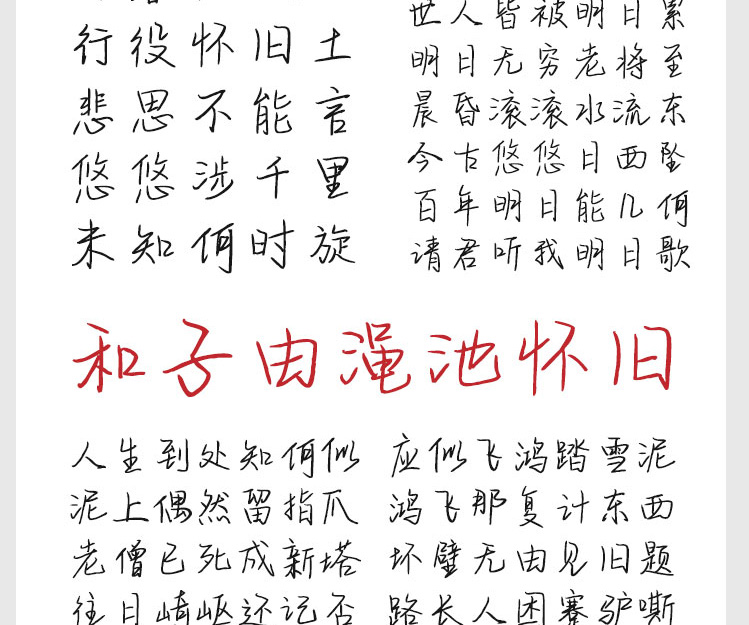 行役怀旧土
悲思不能言
悠悠涉千里
未知何时旋
世人皆被明日累
明日无穷老将至
晨昏滚滚水流东
今古悠悠日西坠
百年明日能几何
请君听我明日歌
和子由渑池怀旧
人生到处知何似 应似飞鸿踏雪泥
泥上偶然留指爪 鸿飞那复计东西
老僧已死成新塔 坏壁无由见旧题
往日崎岖还记否 路长人困蹇驴嘶